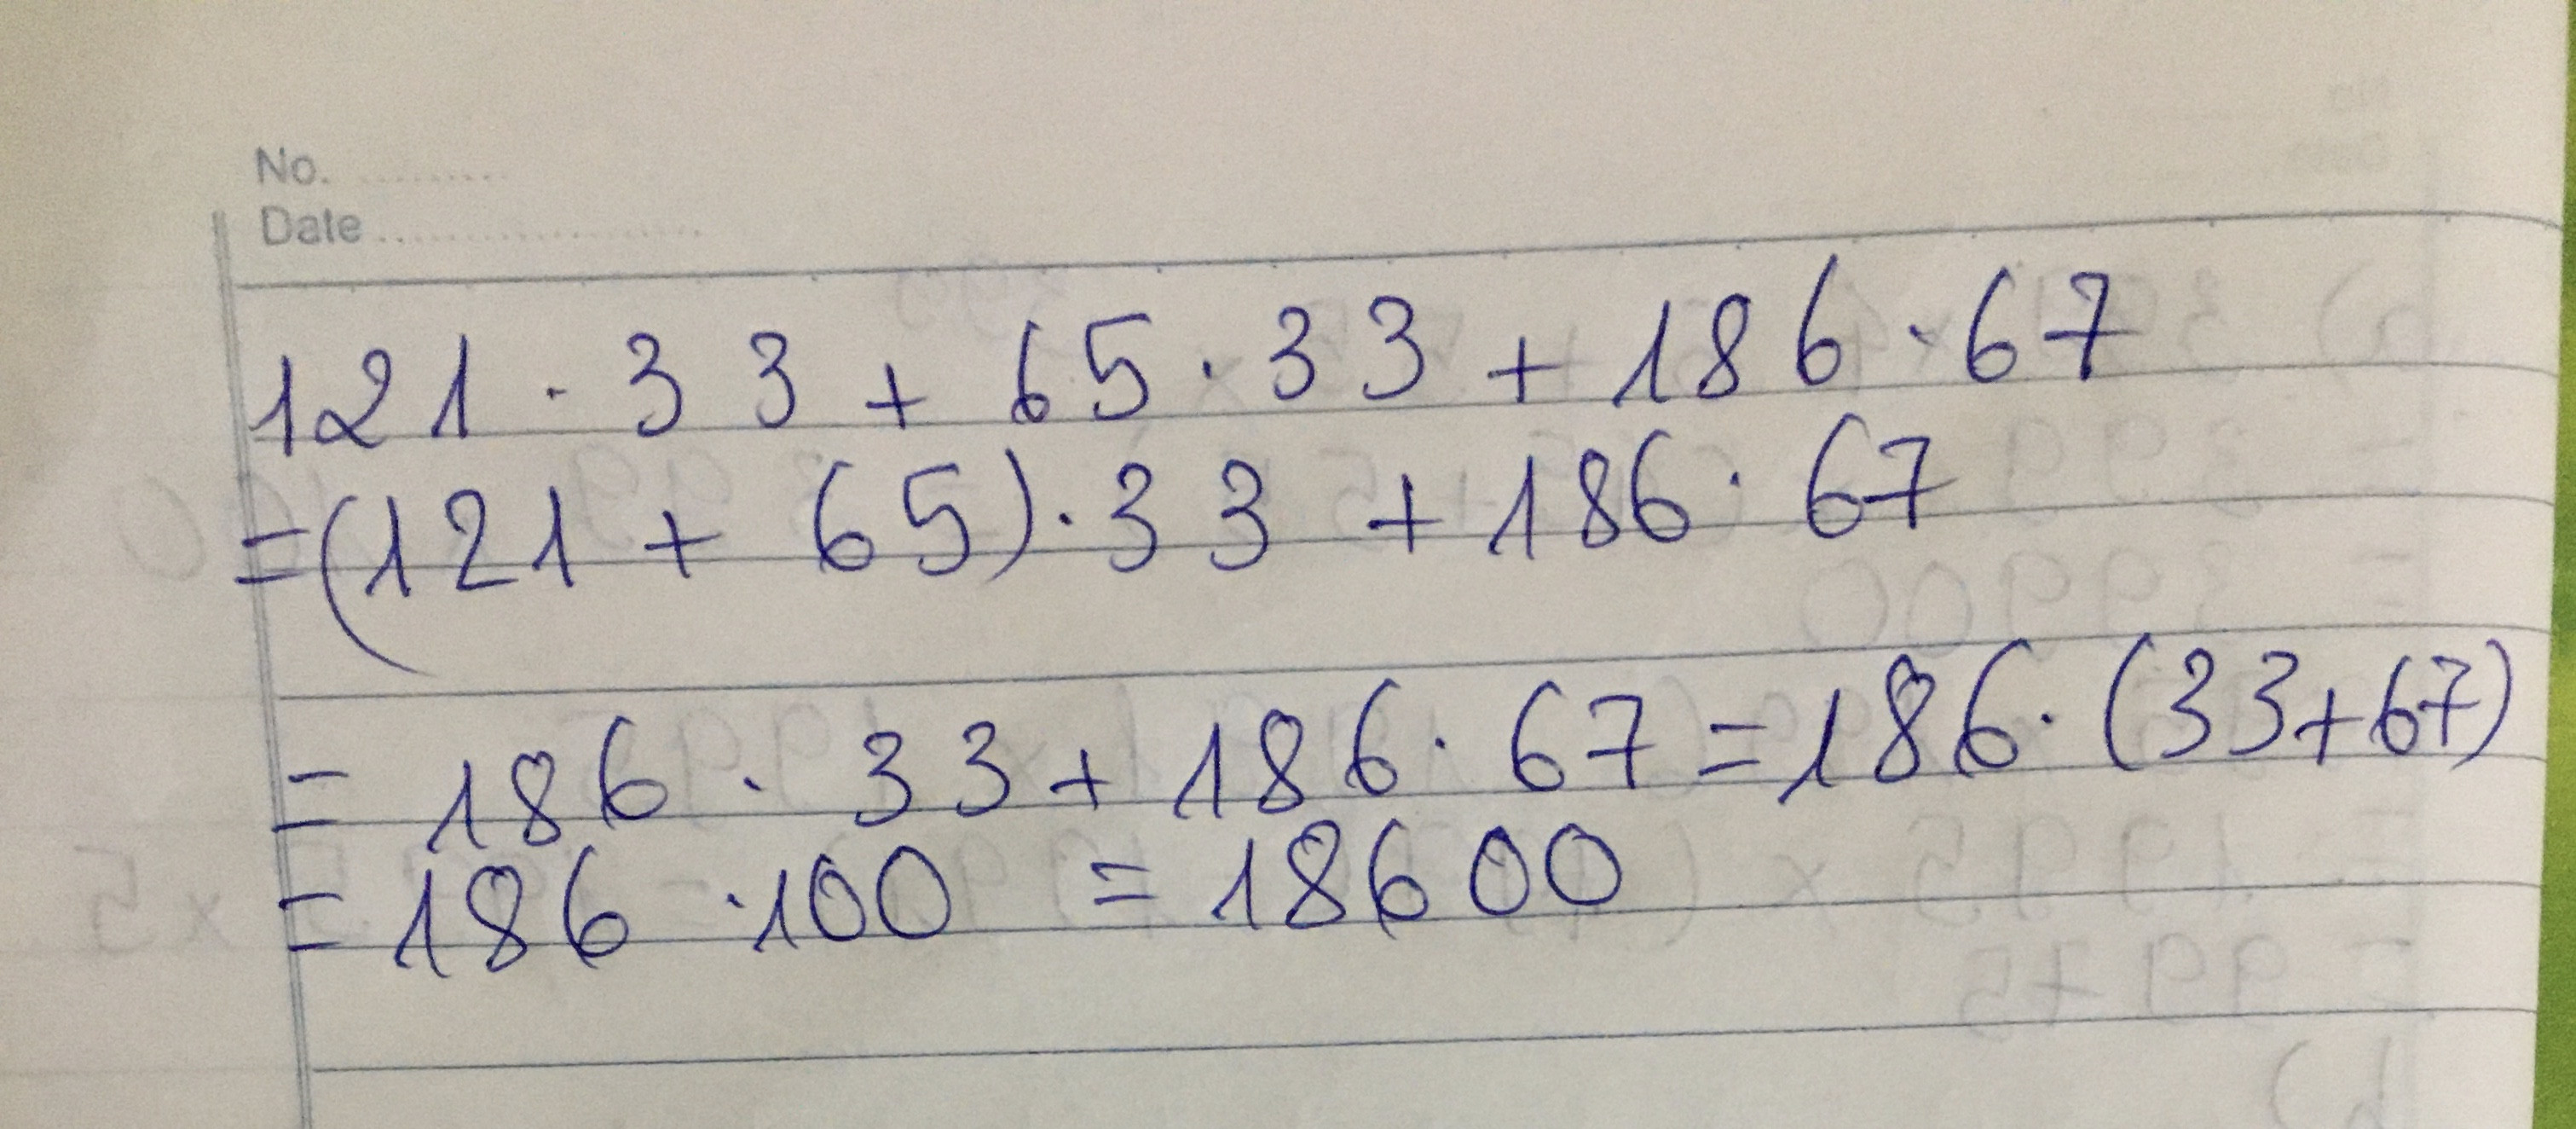 No. .........
Date ....................
121 · 33 + 65 · 33 + 186 · 67
= (121 + 65) · 33 + 186 · 67
= 186 · 33 + 186 · 67 = 186 · (33 + 67)
= 186 · 100 = 18600